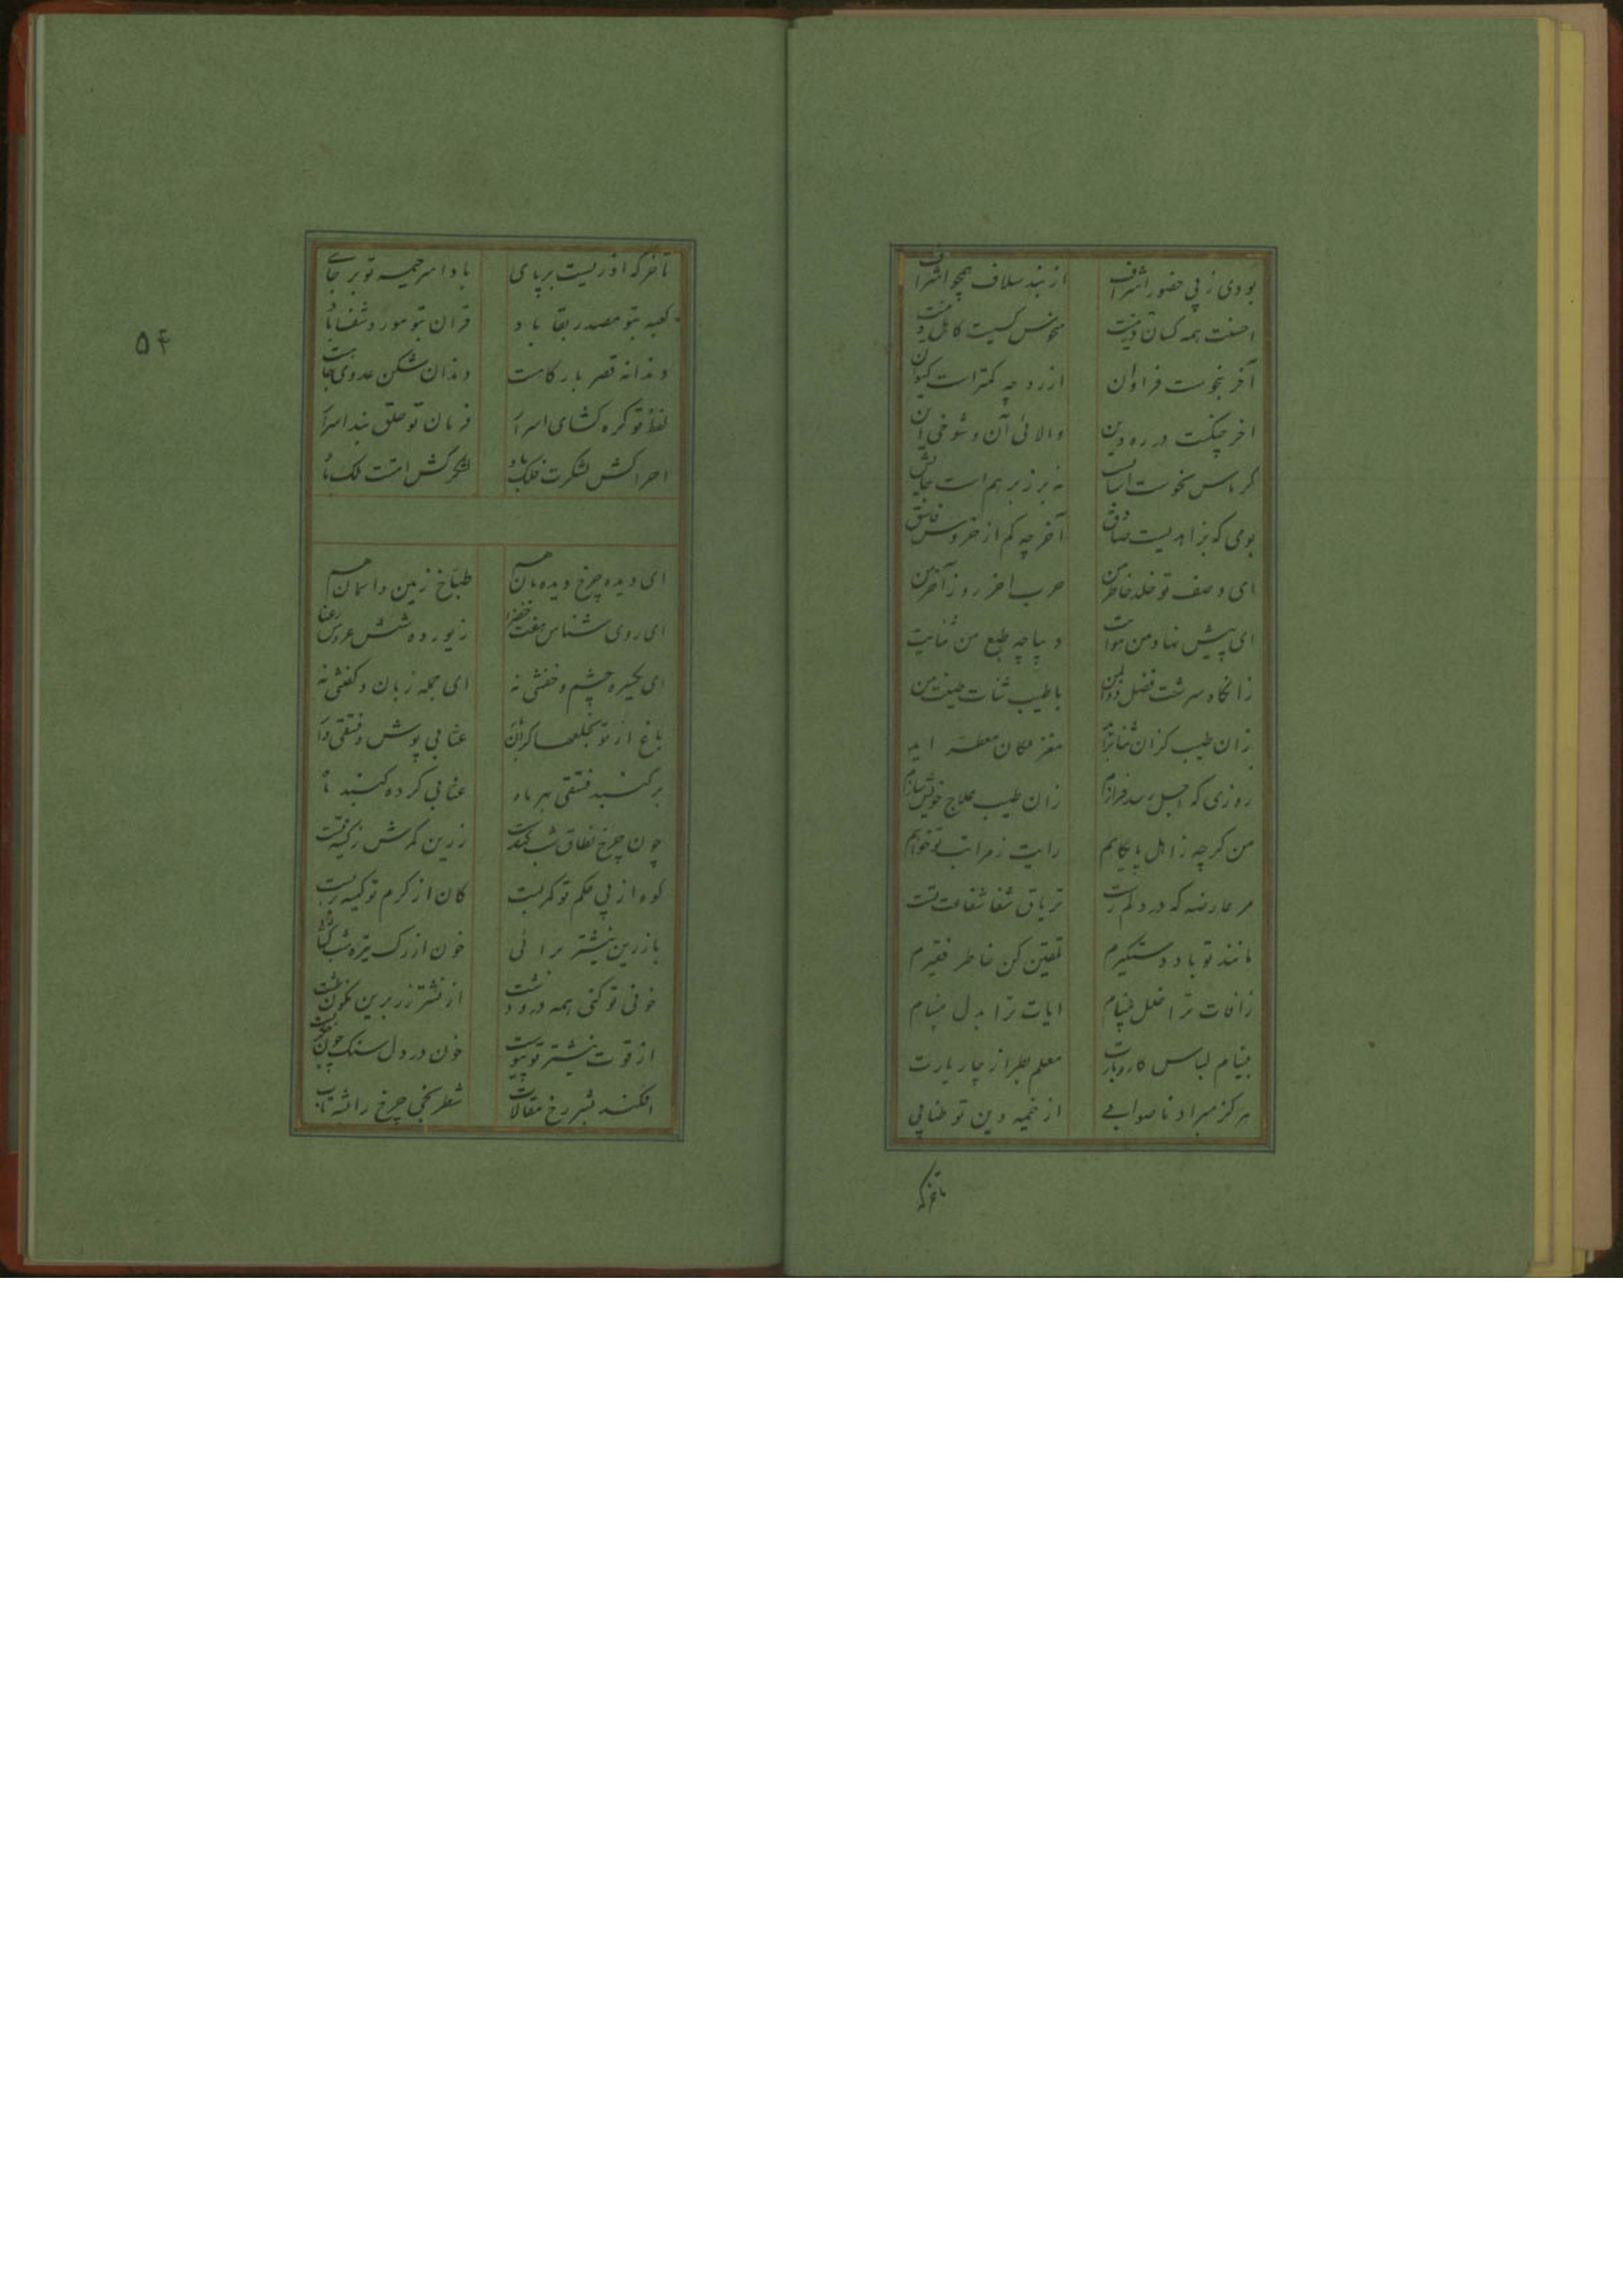 بودی ز پی حضور اشراف از بند سلاف همچو اشراف
احسنت همه کسان دینت منحوس کسیت کاهل دینت
آخر بنحوست فراوان از روچه کمتر است کیوان
اخر چکنت در ره دین والائی آن و شوخی این
کرباس نخوست نه بر زبر هم است جایش
بومی که بزاهدیست صادق آخر چه کم از خروس فاسق
ای وصف تو خلد خاطر من حرب اخر روز آخر من
ای پیش نهاد من هوایت دیباچه طبع من ثنایت
زانگاه سرشت فضل با طیب ثنات من
زان طیب کزان ثنا مغز مکان معطر اید
روزی که اجل رسد فرازم زان طیب علاج خویش سازم
من کرچه ز اهل پایگاهم رایت ز مراتب تو خواهم
هر عارضه که در دلم رست تریاق شفا شفاعت تست
مانند تو باد دستگیرم تلقین کن خاطر فقیرم
زافات ترا خلل مبینام ایات ترا بدل مبینام
مبینام لباس کاروبارت معلم بطراز چار یارت
هرکز مبراد ناصوابی از خیمه دین تو طنابی
تاخرکه
۵۴
تاخرکه ازرقیست برپای بادا سرخیمه تو بر جای
کعبه بتو مصدر بقا باد قران بتو مورد شفا باد
دندانه قصر بارکاهت دندان شکن عدوی جاهت
لفظ تو کره کشای اسرار فرمان تو حلق بند اسرار
اجراکش لشکرت فلک باد لشکرکش امتت ملک باد
ای دیده چرخ و دیده بان هم طباخ زمین و اسمان هم
ای روی شناس هفت خضرا زیور ده شش عروس رعنا
ای یکسره چشم و خفتی نه ای جمله زبان و کفتی نه
باغ از تو بخلعها کران عنابی پوش و فستقی
بر کنبد فستقی بهر ماه عنابی کرده کنبد تا
چون چرخ نطاق شب زرین کمرش ز
کوه از پی حکم تو کمر بست کان از کرم تو کیسه بر بست
بازرین نیشتر برائی خون از رک تیره شب کشائی
خونی تو کنی همه در و دشت از نشتر زر برین نکون طشت
از قوت نیشتر تو پیوست خون در دل سنک چون
افکند بشیر رخ مقالات شطرنجی چرخ را شه